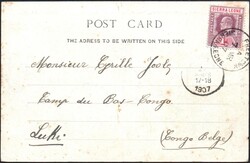 POST CARD
THE ADRESS TO BE WRITTEN ON THIS SIDE
SIERRA LEONE
Monsieur Cyrille Joole
Camp du Bas-Congo
Lukki
(Congo Belge)
1907